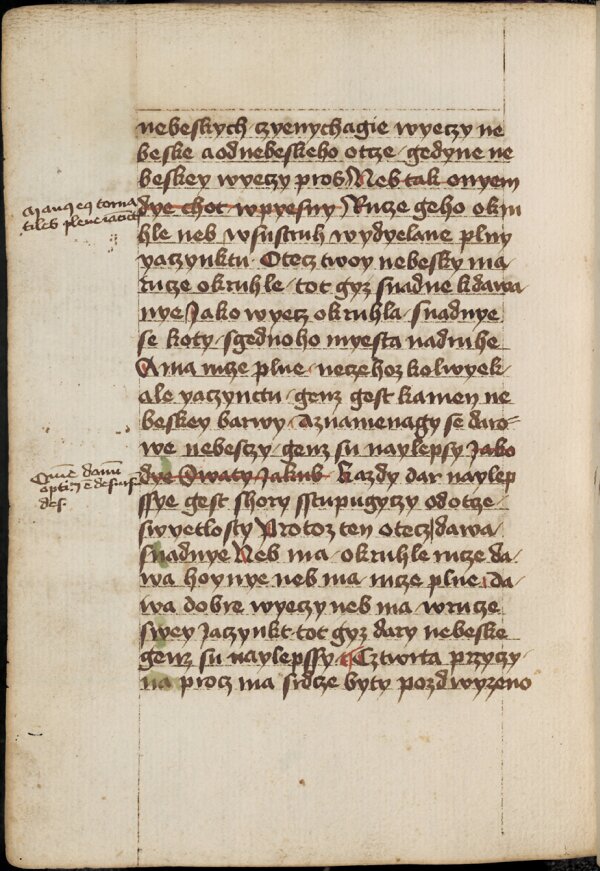 nebeskych czyenychagie wyeczy ne
beske a od nebeskeho otcze gedyne ne
beskey wyeczy pros Neb tak onyem
dye chot w pyesny Rucze geho okru
hle neb w sustruh wydyelane plny
yaczynktu Otecz twoy nebesky ma
rucze okruhle tot gyz snadne k dawa
nye Jako wyecz okruhla snadnye
se koty s gednoho myesta na druhe
A ma rucze plne neczehoz kolwyek
ale yaczynctu genz gest kamen ne
beskey barwy a znamenagy se daro
we nebesczy genz su naylepsy Jako
dye Swaty Jakub Kazdy dar naylep
ssye gest shory sstupugyczy od otcze
swyetlosty Protoz ten otecz dawa
snadnye Neb ma okruhle rucze da
wa hoynye neb ma rucze plne da
wa dobre wyeczy neb ma w rucze
swey Jaczynkt tot gyz dary nebeske
genz su naylepssy Cztwrta przyczy
na procz ma srdcze byty pozdwyzeno
Manus eius torna
tiles plene iacinctis
Omne datum
optimum et desursum
des.